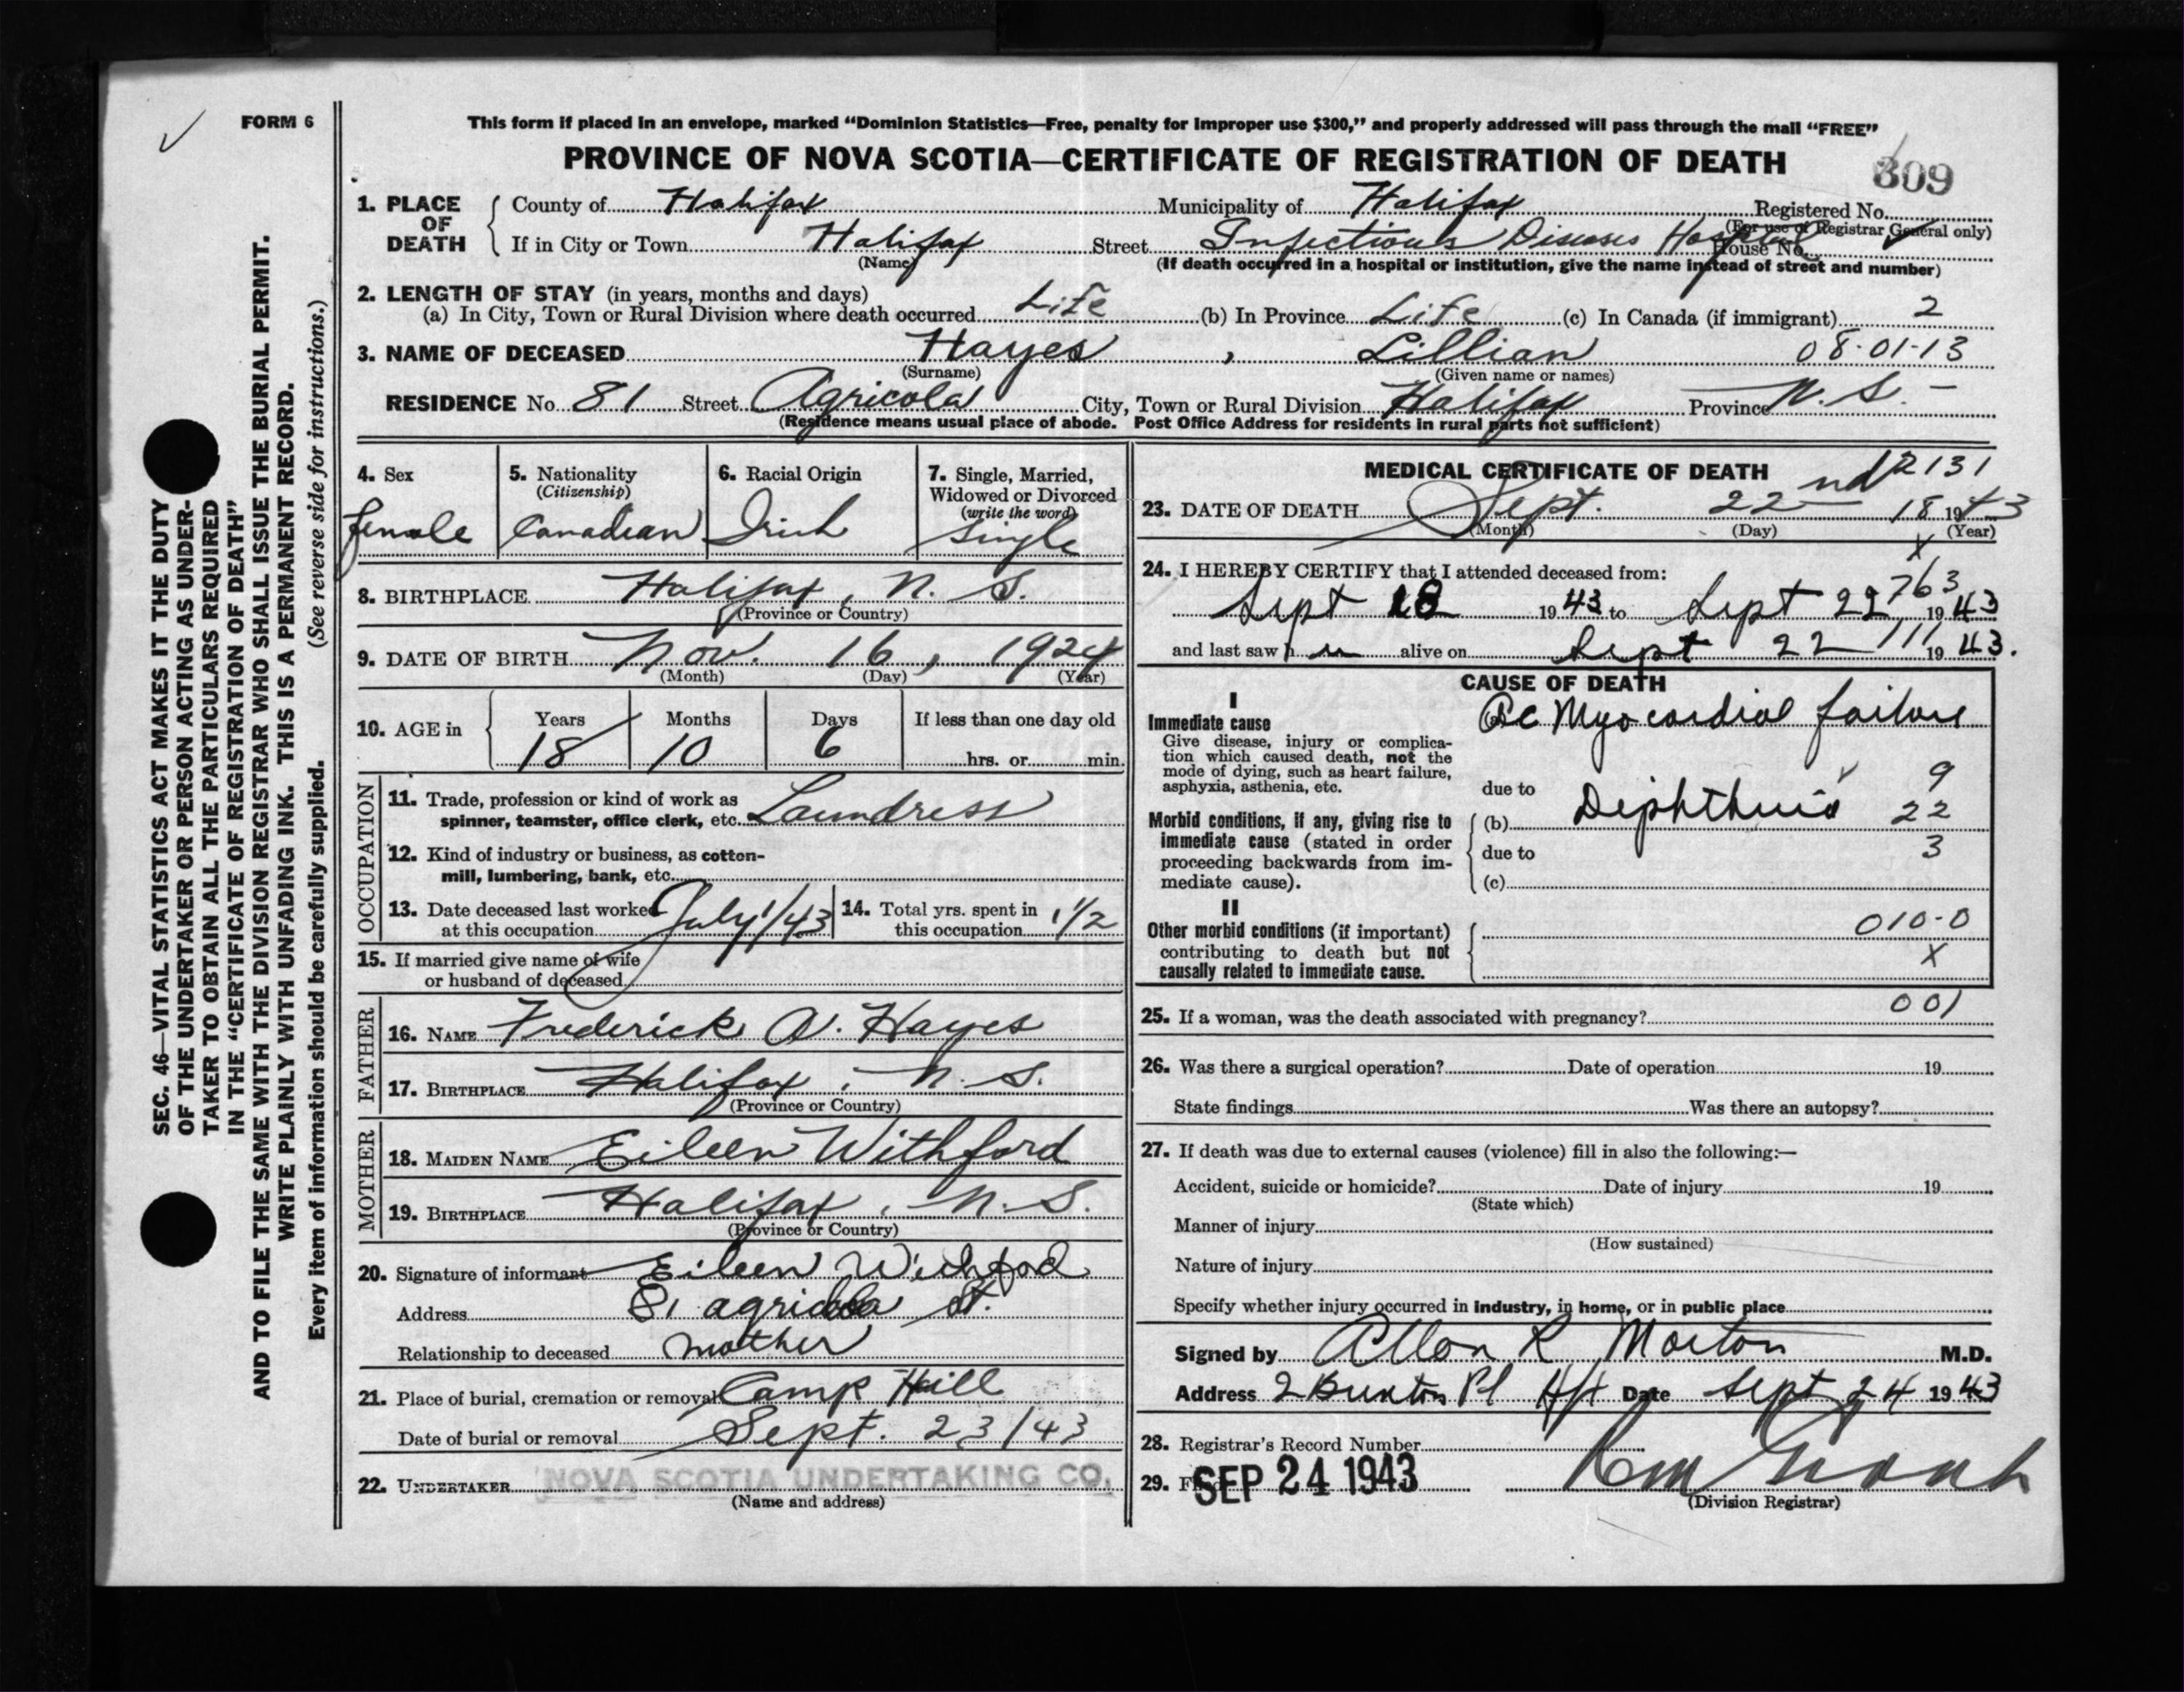 FORM 6
This form if placed in an envelope, marked “Dominion Statistics—Free, penalty for improper use $300,” and properly addressed will pass through the mail “FREE”
PROVINCE OF NOVA SCOTIA—CERTIFICATE OF REGISTRATION OF DEATH
309
1. PLACE OF DEATH
County of Halifax Municipality of Halifax Registered No.
(For use of Registrar General only)
If in City or Town Halifax Street Infectious Diseases Hospital House No.
(Name) (If death occurred in a hospital or institution, give the name instead of street and number)
2. LENGTH OF STAY (in years, months and days)
(a) In City, Town or Rural Division where death occurred Life (b) In Province Life (c) In Canada (if immigrant) 2
3. NAME OF DECEASED Hayes , Lillian 08-01-13
(Surname) (Given name or names)
RESIDENCE No. 81 Street Agricola City, Town or Rural Division Halifax Province N.S. -
(Residence means usual place of abode. Post Office Address for residents in rural parts not sufficient)
4. Sex
female
5. Nationality
(Citizenship)
Canadian
6. Racial Origin
Irish
7. Single, Married,
Widowed or Divorced
(write the word)
Single
8. BIRTHPLACE Halifax, N. S.
(Province or Country)
9. DATE OF BIRTH Nov. 16, 1924
(Month) (Day) (Year)
10. AGE in
Years Months Days If less than one day old
18 10 6 hrs. or min.
OCCUPATION
11. Trade, profession or kind of work as
spinner, teamster, office clerk, etc. Laundress
12. Kind of industry or business, as cotton-
mill, lumbering, bank, etc.
13. Date deceased last worked
at this occupation July 1/43
14. Total yrs. spent in
this occupation 1 1/2
15. If married give name of wife
or husband of deceased
FATHER
16. NAME Frederick A. Hayes
17. BIRTHPLACE Halifax, N. S.
(Province or Country)
MOTHER
18. MAIDEN NAME Eileen Withford
19. BIRTHPLACE Halifax, N. S.
(Province or Country)
20. Signature of informant Eileen
Address 81 agricola St.
Relationship to deceased mother
21. Place of burial, cremation or removal Camp Hill
Date of burial or removal Sept. 23/43
22. UNDERTAKER NOVA SCOTIA UNDERTAKING CO.
(Name and address)
MEDICAL CERTIFICATE OF DEATH
2131
23. DATE OF DEATH Sept. 22nd 18 1943
(Month) (Day) (Year)
X
24. I HEREBY CERTIFY that I attended deceased from:
763
Sept 18 1943 to Sept 22 1943
and last saw h alive on Sept 22 111 1943.
CAUSE OF DEATH
I
Immediate cause
Give disease, injury or complica-
tion which caused death, not the
mode of dying, such as heart failure,
asphyxia, asthenia, etc.
(a) Myocardial failure
9
due to
Morbid conditions, if any, giving rise to
immediate cause (stated in order
proceeding backwards from im-
mediate cause).
(b) Diphtheria 22
due to 3
(c)
II
Other morbid conditions (if important)
contributing to death but not
causally related to immediate cause.
010-0
X
001
25. If a woman, was the death associated with pregnancy?
26. Was there a surgical operation? Date of operation 19
State findings Was there an autopsy?
27. If death was due to external causes (violence) fill in also the following:—
Accident, suicide or homicide? Date of injury 19
(State which)
Manner of injury
(How sustained)
Nature of injury
Specify whether injury occurred in industry, in home, or in public place
Signed by Allan R Morton M.D.
Address 2 Pl Hfx Date Sept 24 1943
28. Registrar's Record Number
29. SEP 24 1943
(Division Registrar)
SEC. 46—VITAL STATISTICS ACT MAKES IT THE DUTY
OF THE UNDERTAKER OR PERSON ACTING AS UNDER-
TAKER TO OBTAIN ALL THE PARTICULARS REQUIRED
IN THE “CERTIFICATE OF REGISTRATION OF DEATH”
AND TO FILE THE SAME WITH THE DIVISION REGISTRAR WHO SHALL ISSUE THE BURIAL PERMIT.
WRITE PLAINLY WITH UNFADING INK. THIS IS A PERMANENT RECORD.
Every item of information should be carefully supplied. (See reverse side for instructions.)